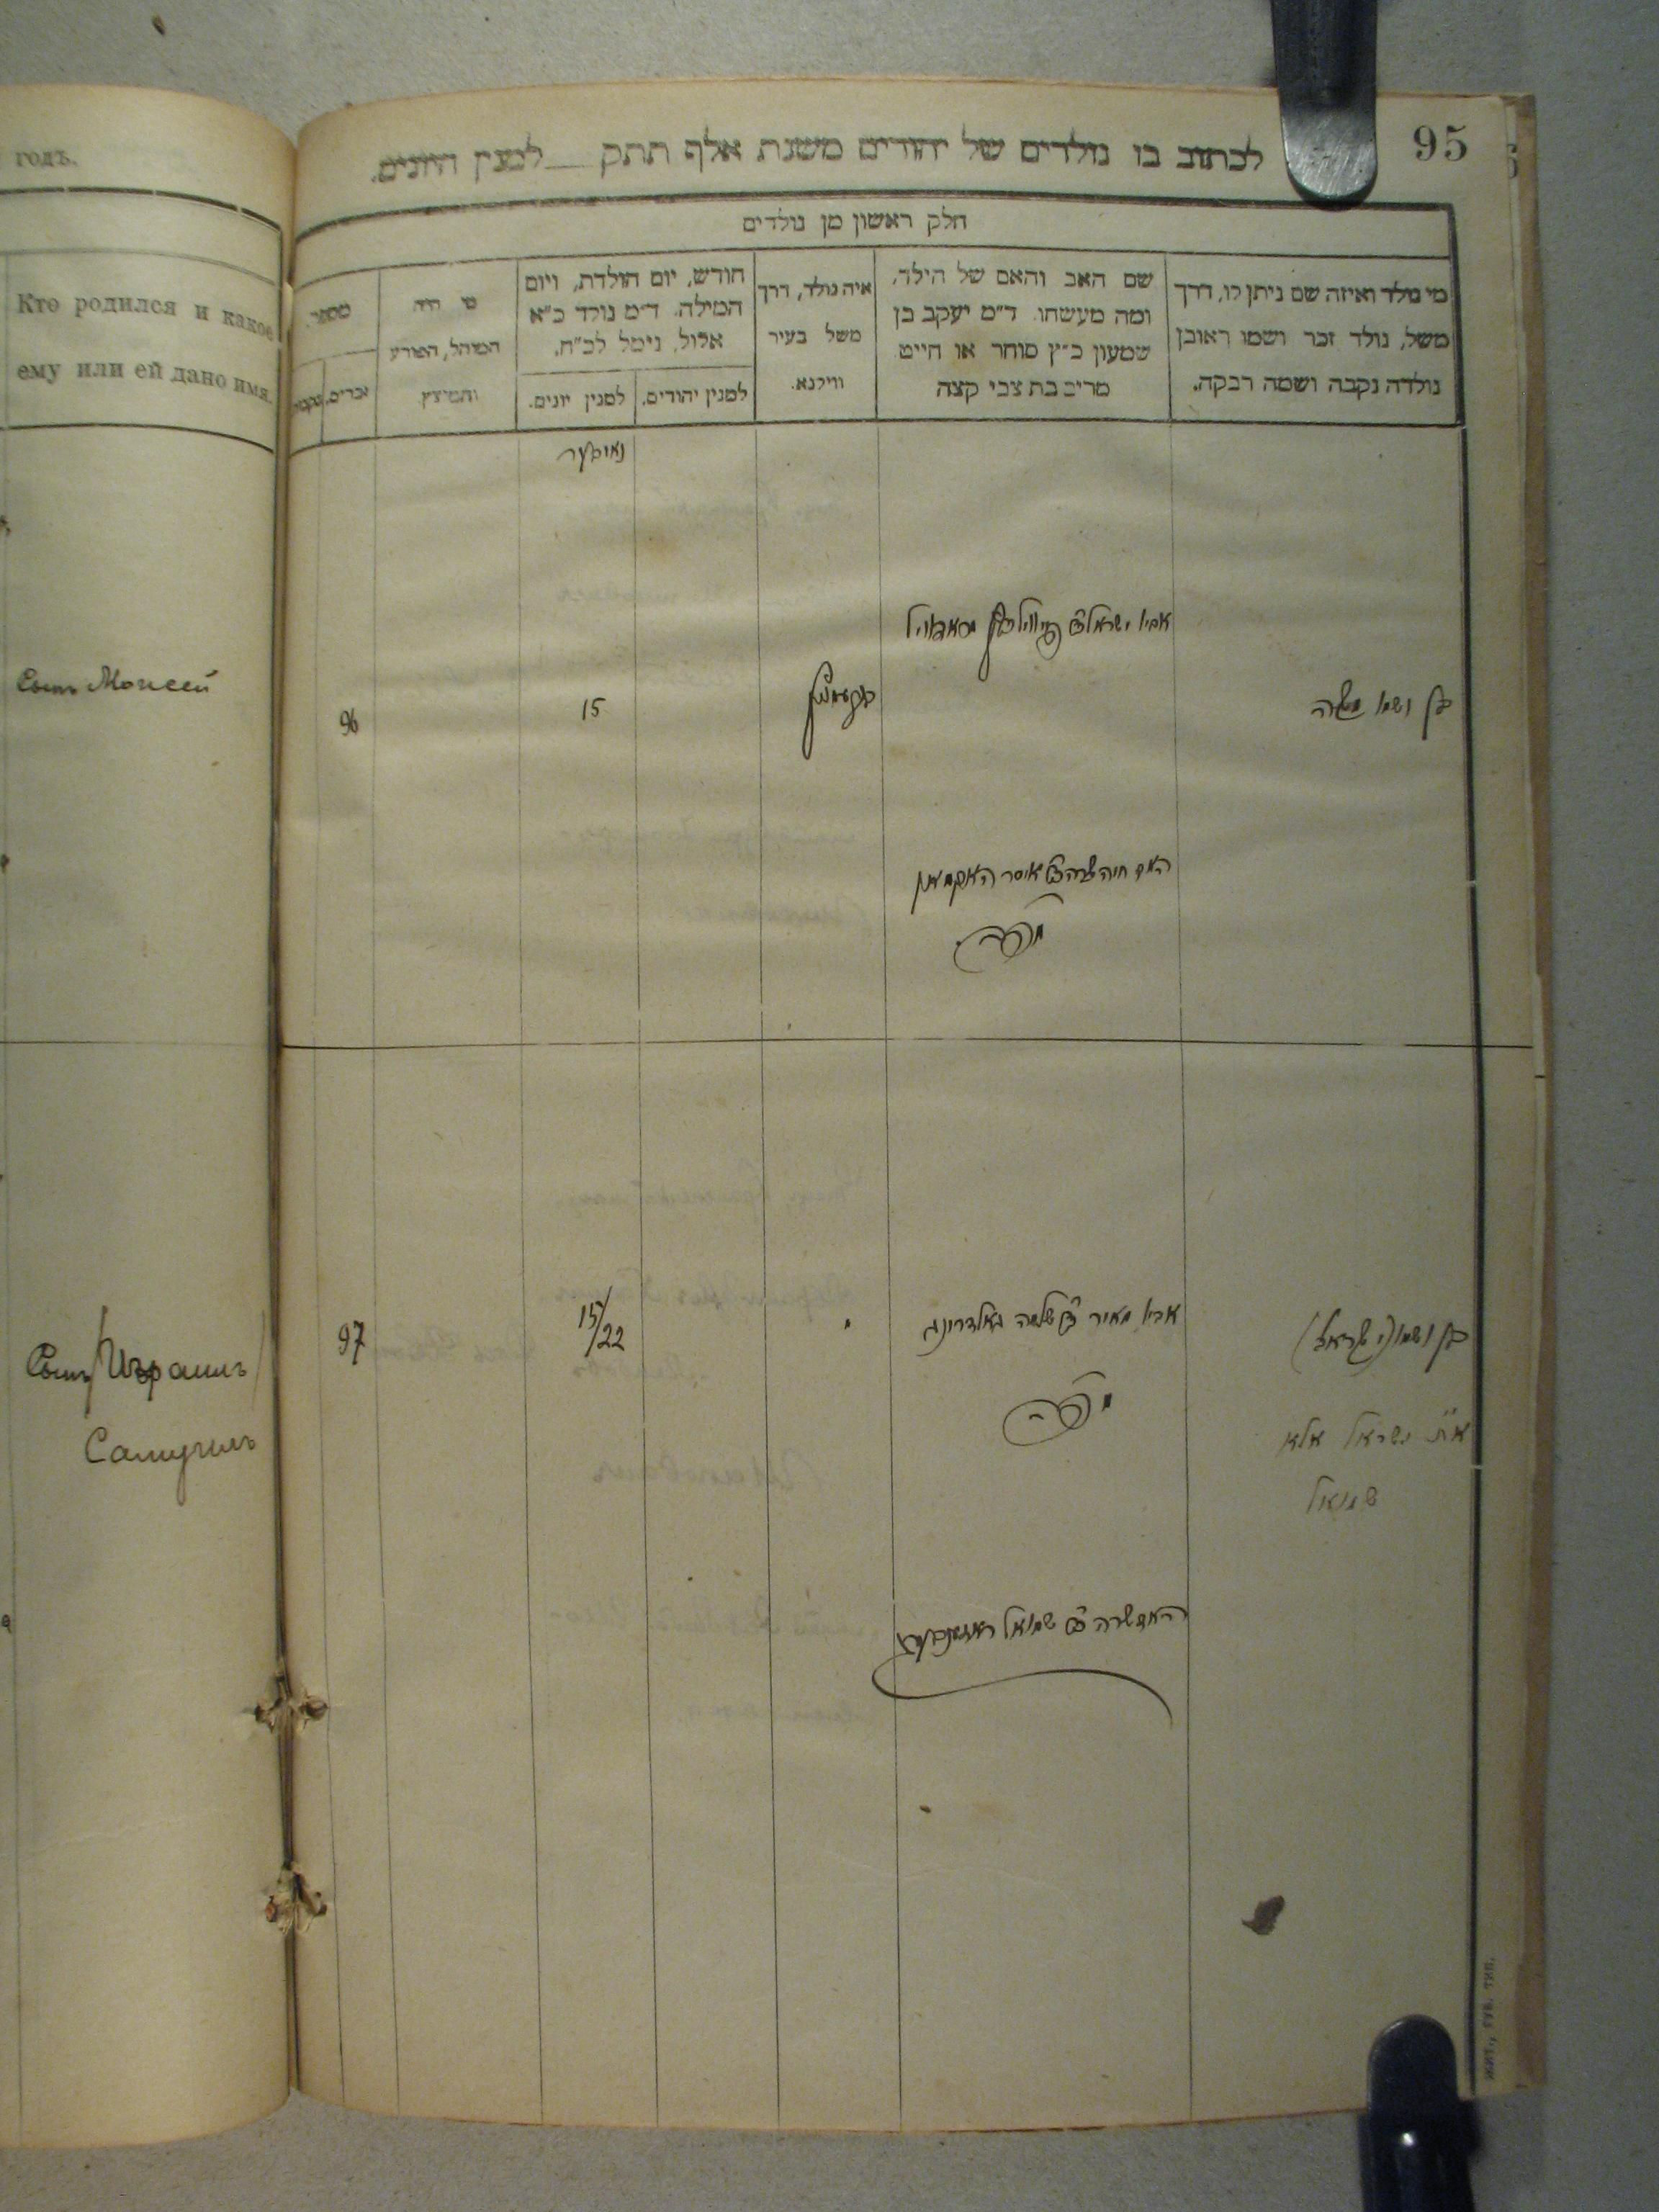 годъ.
Кто родился и какое
ему или ей дано имя.
Сынъ Моисей
Сынъ Израиль
Самуилъ
95
לכתוב בו נולדים של יהודים משנת אלף תתק למנין היונים.
חלק ראשון מן נולדים
מי נולד ואיזה שם ניתן לו, דרך
משל, נולד זכר ושמו ראובן
נולדה נקבה ושמה רבקה.
שם האב והאם של הילד,
ומה מעשהו. ד״מ יעקב בן
שמעון כ״ץ סוחר או חייט
מרים בת צבי קצה
איה נולד, דרך
משל בעיר
ווילנא.
חודש, יום הולדת, ויום
המילה. ד״מ נולד כ״א
אלול, נימל לכ״ח.
למנין יהודים.
למנין יונים.
מי היה
המוהל, הפורע
והמוצץ
מספר.
זכרים.
נקבות
בן ושמו משה
אביו ישראל
15
96
האם חיה שרה בת איסר
בן ושמו (ישראל)
א״ת ישראל אלא
שמואל
אביו מאיר ב״ר שלמה
15/22
97
האם שרה בת שמואל
ЖИТ., ГУБ. ТИП.